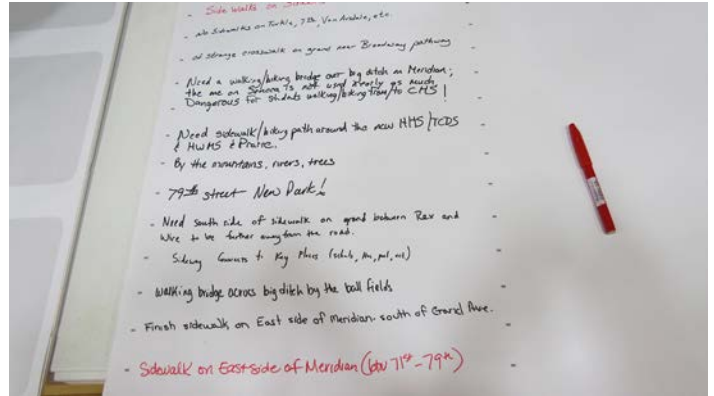 - Side Walks on
- No Sidewalks on Tuttle, 7th, Van Arsdale, etc.
- od strange crosswalk on grand near Broadway pathway
- Need a walking/biking bridge over big ditch on Meridian;
the one on Seneca is not used nearly as much
Dangerous for students walking/biking from/to CMS!
- Need sidewalk/biking path around the new HHS/TCDS
& HWMS & Prairie.
- By the mountains, rivers, trees
- 79th street New Park!
- Need south side of sidewalk on grand between Rex and
Wire to be further away from the road.
- Sideway Connects to Key Places (schools,
- Walking bridge across big ditch by the ball fields
- Finish sidewalk on East side of Meridian. south of Grand Ave.
- Sidewalk on East side of Meridian (btw 71st - 79th)